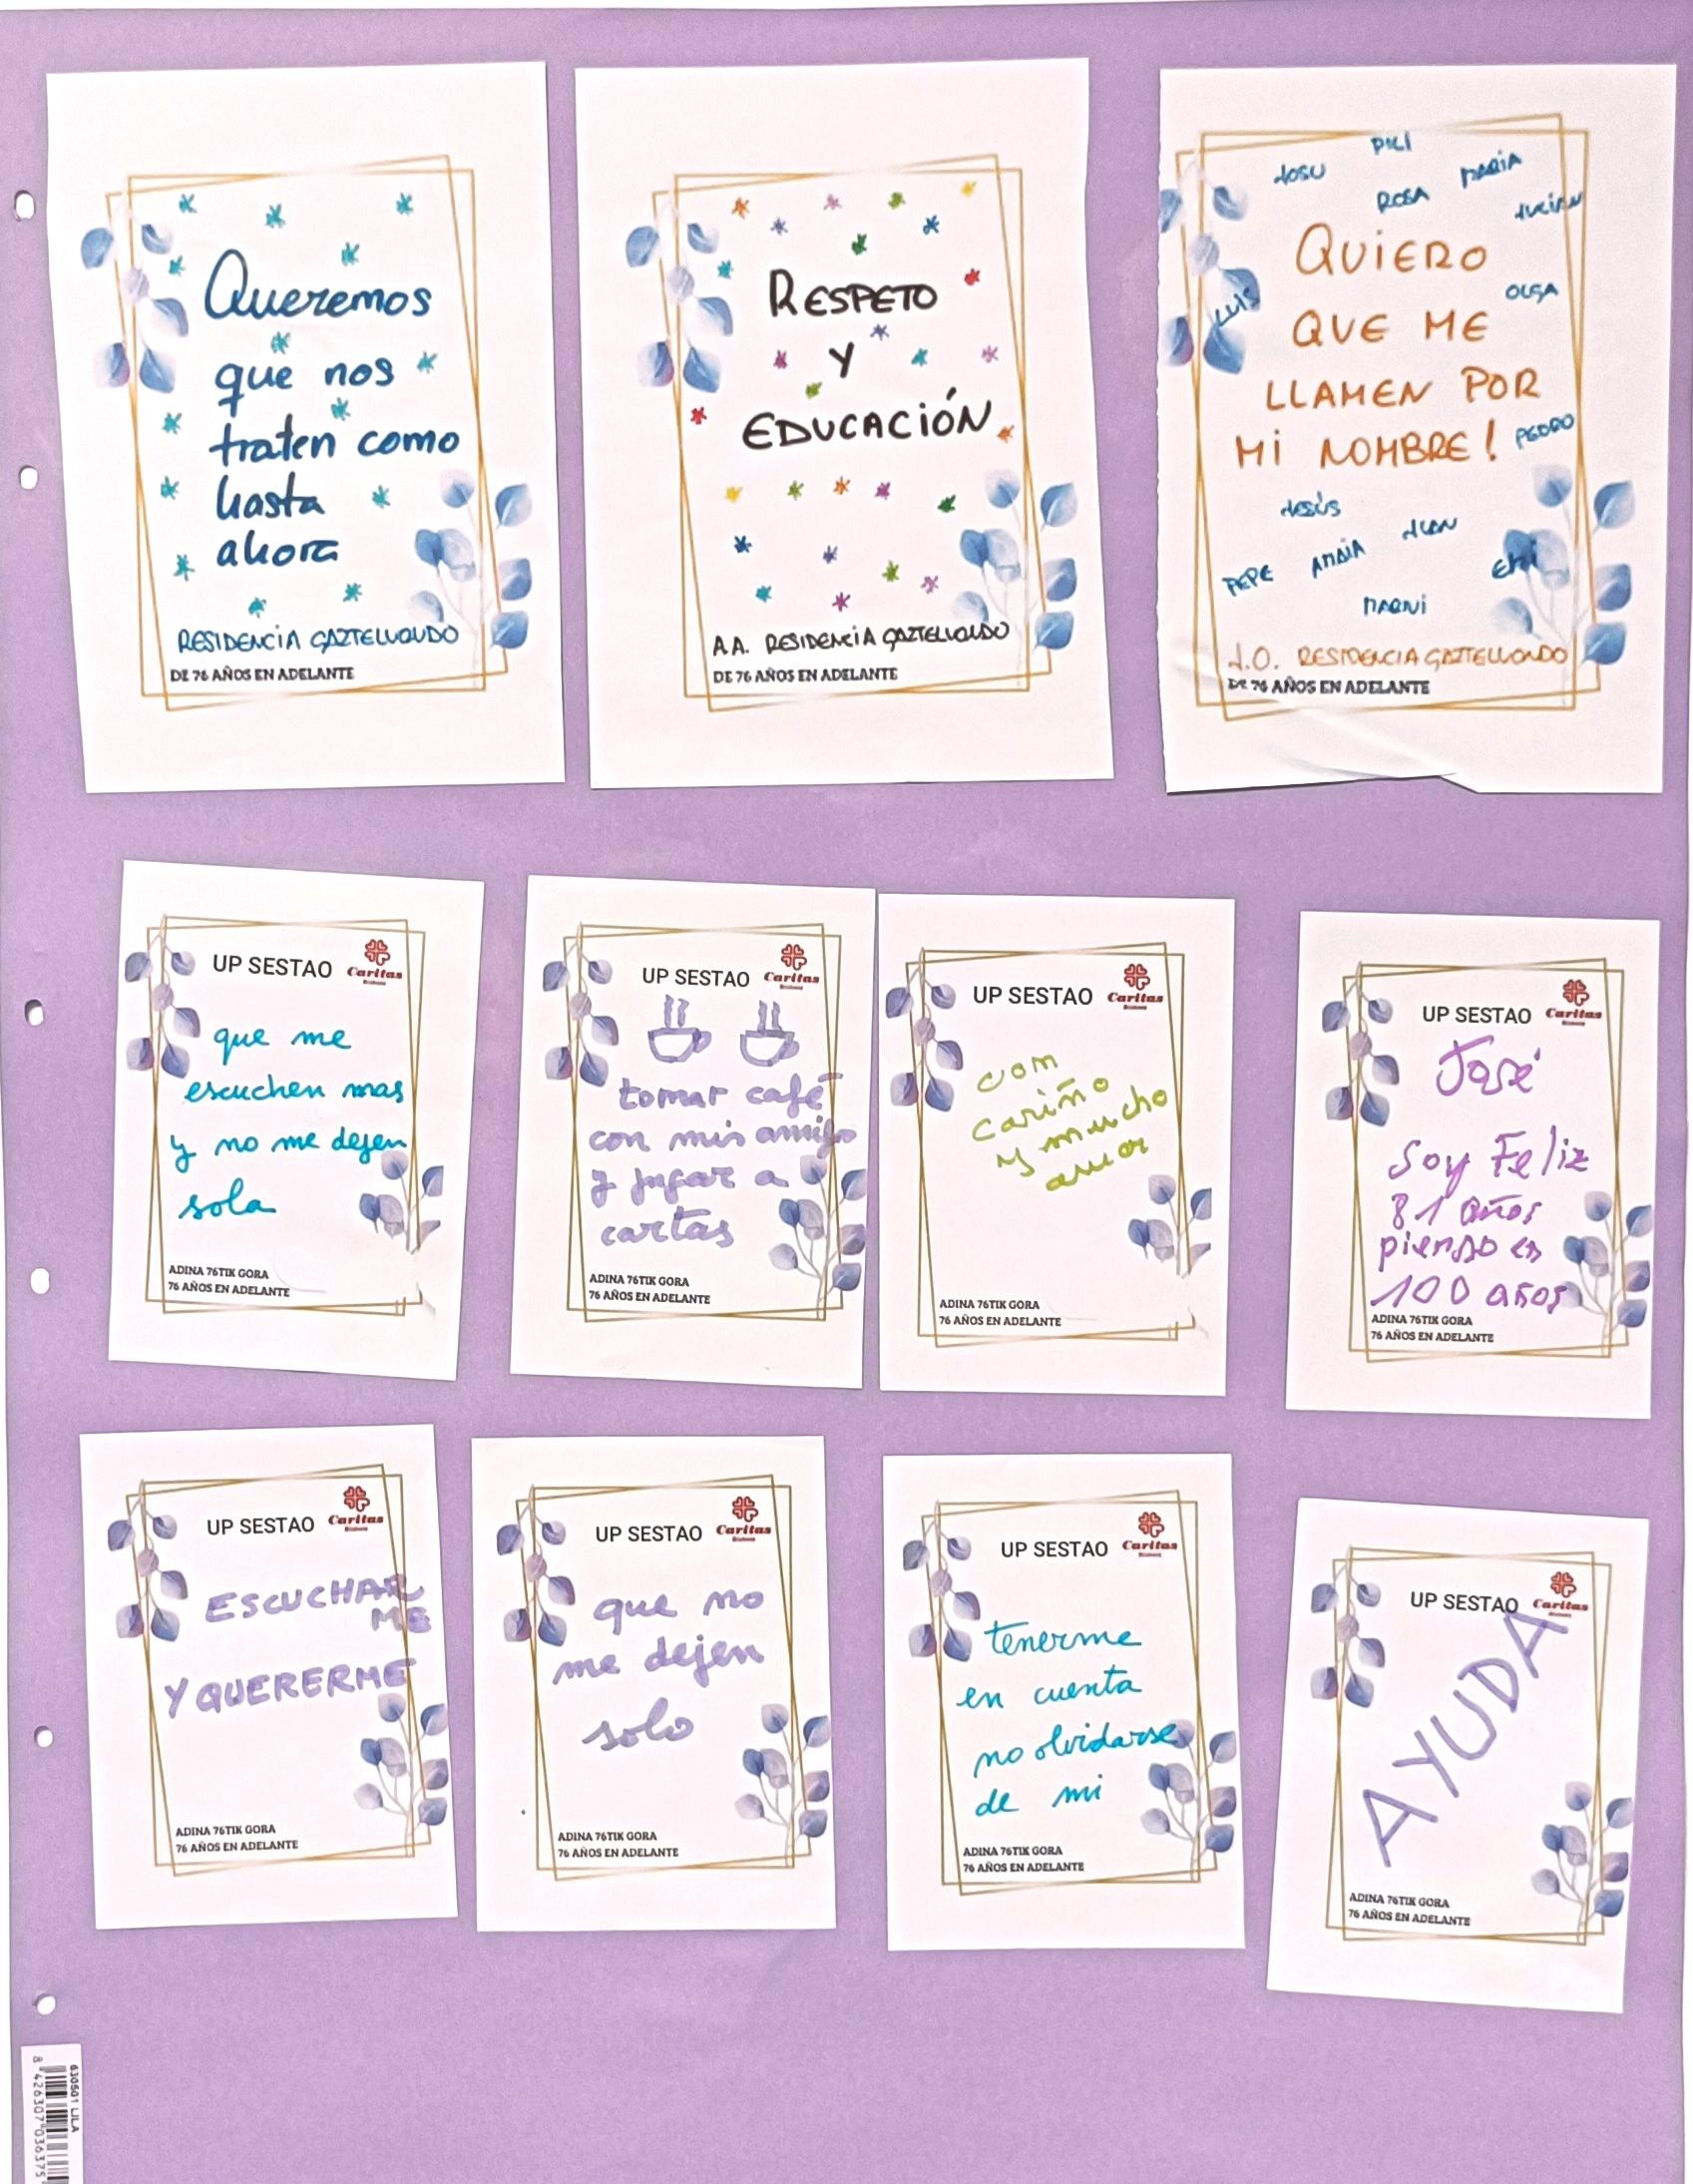 Queremos
que nos
traten como
hasta
ahora
RESIDENCIA GAZTELUONDO
DE 76 AÑOS EN ADELANTE
RESPETO
Y
EDUCACIÓN
A.A. RESIDENCIA GAZTELUONDO
DE 76 AÑOS EN ADELANTE
PILI
JOSU
MARIA
ROSA
QUIERO
LUIS
OLGA
QUE ME
LLAMEN POR
MI NOMBRE!
PEDRO
JESÚS
JUAN
PEPE
AMAIA
MARNI
J.O. RESIDENCIA GAZTELUONDO
DE 76 AÑOS EN ADELANTE
UP SESTAO
Caritas
que me
escuchen mas
y no me dejen
sola
ADINA 76TIK GORA
76 AÑOS EN ADELANTE
UP SESTAO
Caritas
tomar café
con mis amigos
y jugar a
cartas
ADINA 76TIK GORA
76 AÑOS EN ADELANTE
UP SESTAO
Caritas
con
cariño
y mucho
amor
ADINA 76TIK GORA
76 AÑOS EN ADELANTE
UP SESTAO
Caritas
José
Soy Feliz
81 años
pienso en
100 años
ADINA 76TIK GORA
76 AÑOS EN ADELANTE
UP SESTAO
Caritas
ESCUCHAR
ME
Y QUERERME
ADINA 76TIK GORA
76 AÑOS EN ADELANTE
UP SESTAO
Caritas
que no
me dejen
solo
ADINA 76TIK GORA
76 AÑOS EN ADELANTE
UP SESTAO
Caritas
tenerme
en cuenta
no olvidarse
de mi
ADINA 76TIK GORA
76 AÑOS EN ADELANTE
UP SESTAO
Caritas
AYUDA
ADINA 76TIK GORA
76 AÑOS EN ADELANTE
630501 LILA
8 426307 036375